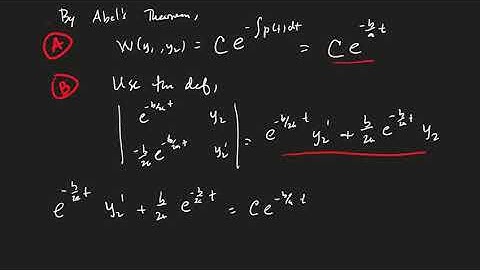 By Abel's Theorem,
Ⓐ W(y₁, y₂) = C e^{-∫p(t)dt} = C e^{-b/a t}
Ⓑ Use the def,
| e^{-b/2a t} y₂ |
| -b/2a e^{-b/2a t} y₂' | = e^{-b/2a t} y₂' + b/2a e^{-b/2a t} y₂
e^{-b/2a t} y₂' + b/2a e^{-b/2a t} = C e^{-b/a t}